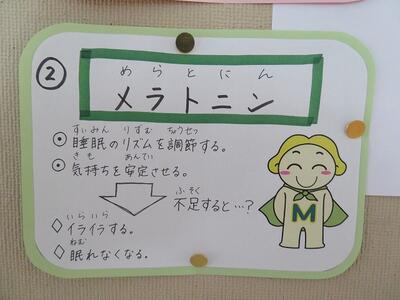 ②
めらとにん
メラトニン
すいみん りずむ ちょうせつ
⦿睡眠のリズムを調節する。
きも あんてい
⦿気持ちを安定させる。
ふそく
不足すると…?
いらいら
◇イライラする。
ねむ
◇眠れなくなる。
M